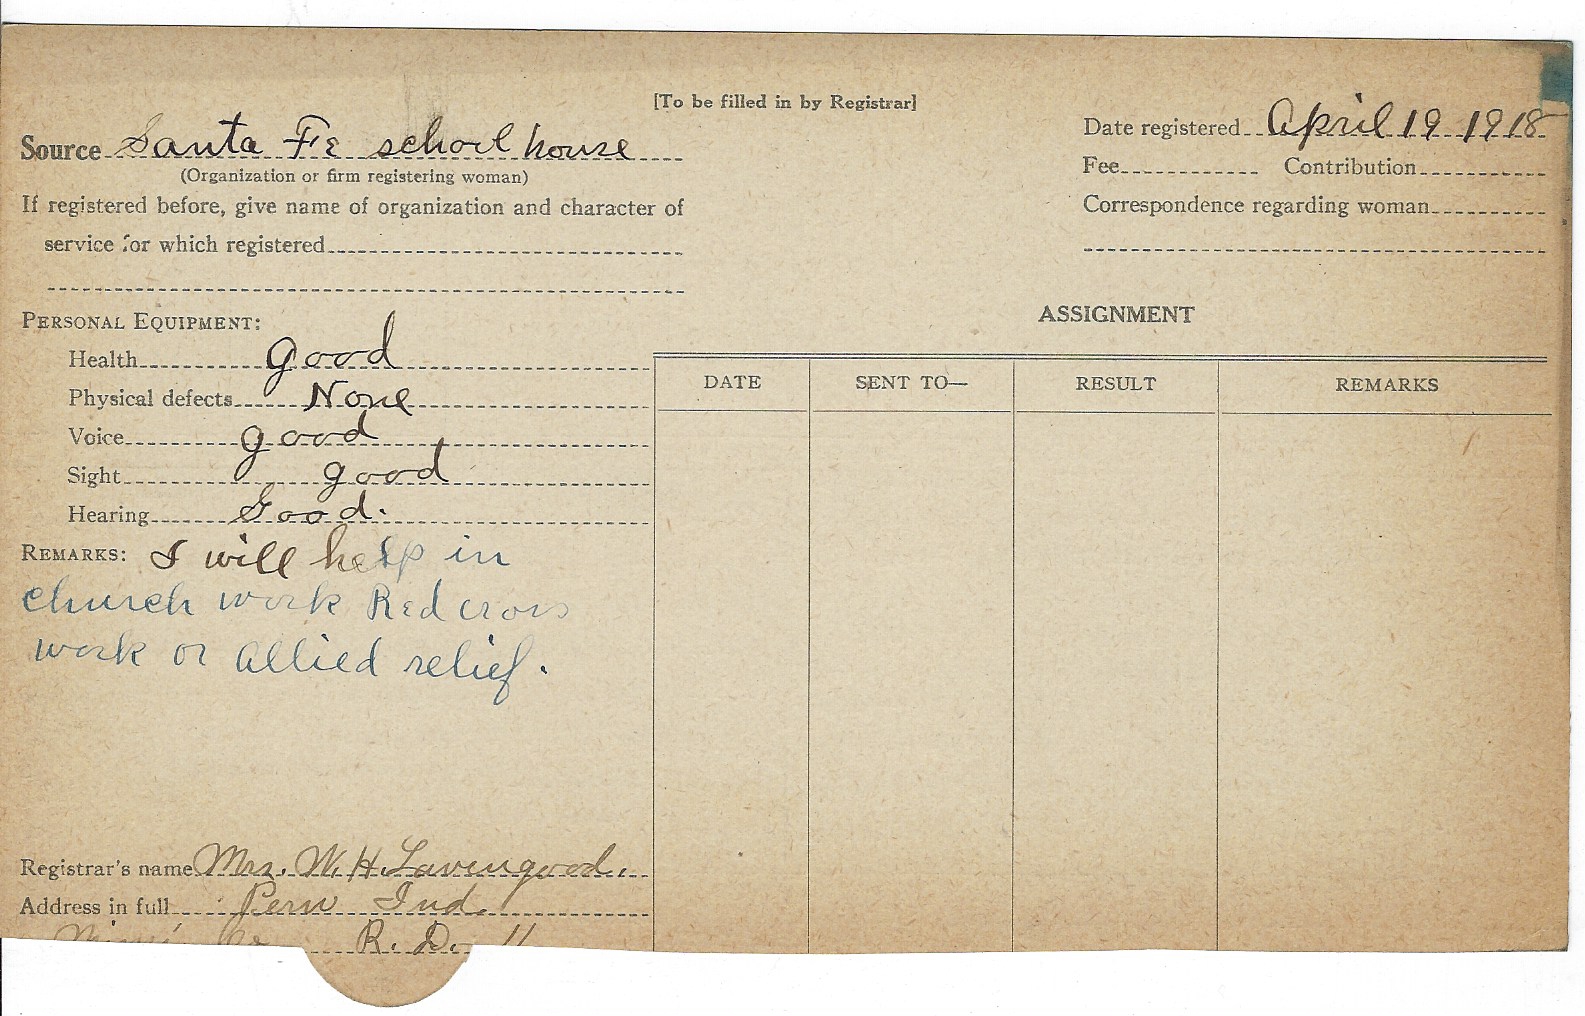 [To be filled in by Registrar]
Source Santa Fe school house
(Organization or firm registering woman)
If registered before, give name of organization and character of
service for which registered
Date registered April 19 1918
Fee Contribution
Correspondence regarding woman
PERSONAL EQUIPMENT:
Health good
Physical defects None
Voice good
Sight good
Hearing Good.
REMARKS: I will help in
church work Red cross
work or allied relief.
Registrar's name Mrs. W. H. Lavengood.
Address in full Peru Ind.
Miami Co. R. D. 11
ASSIGNMENT
DATE SENT TO— RESULT REMARKS